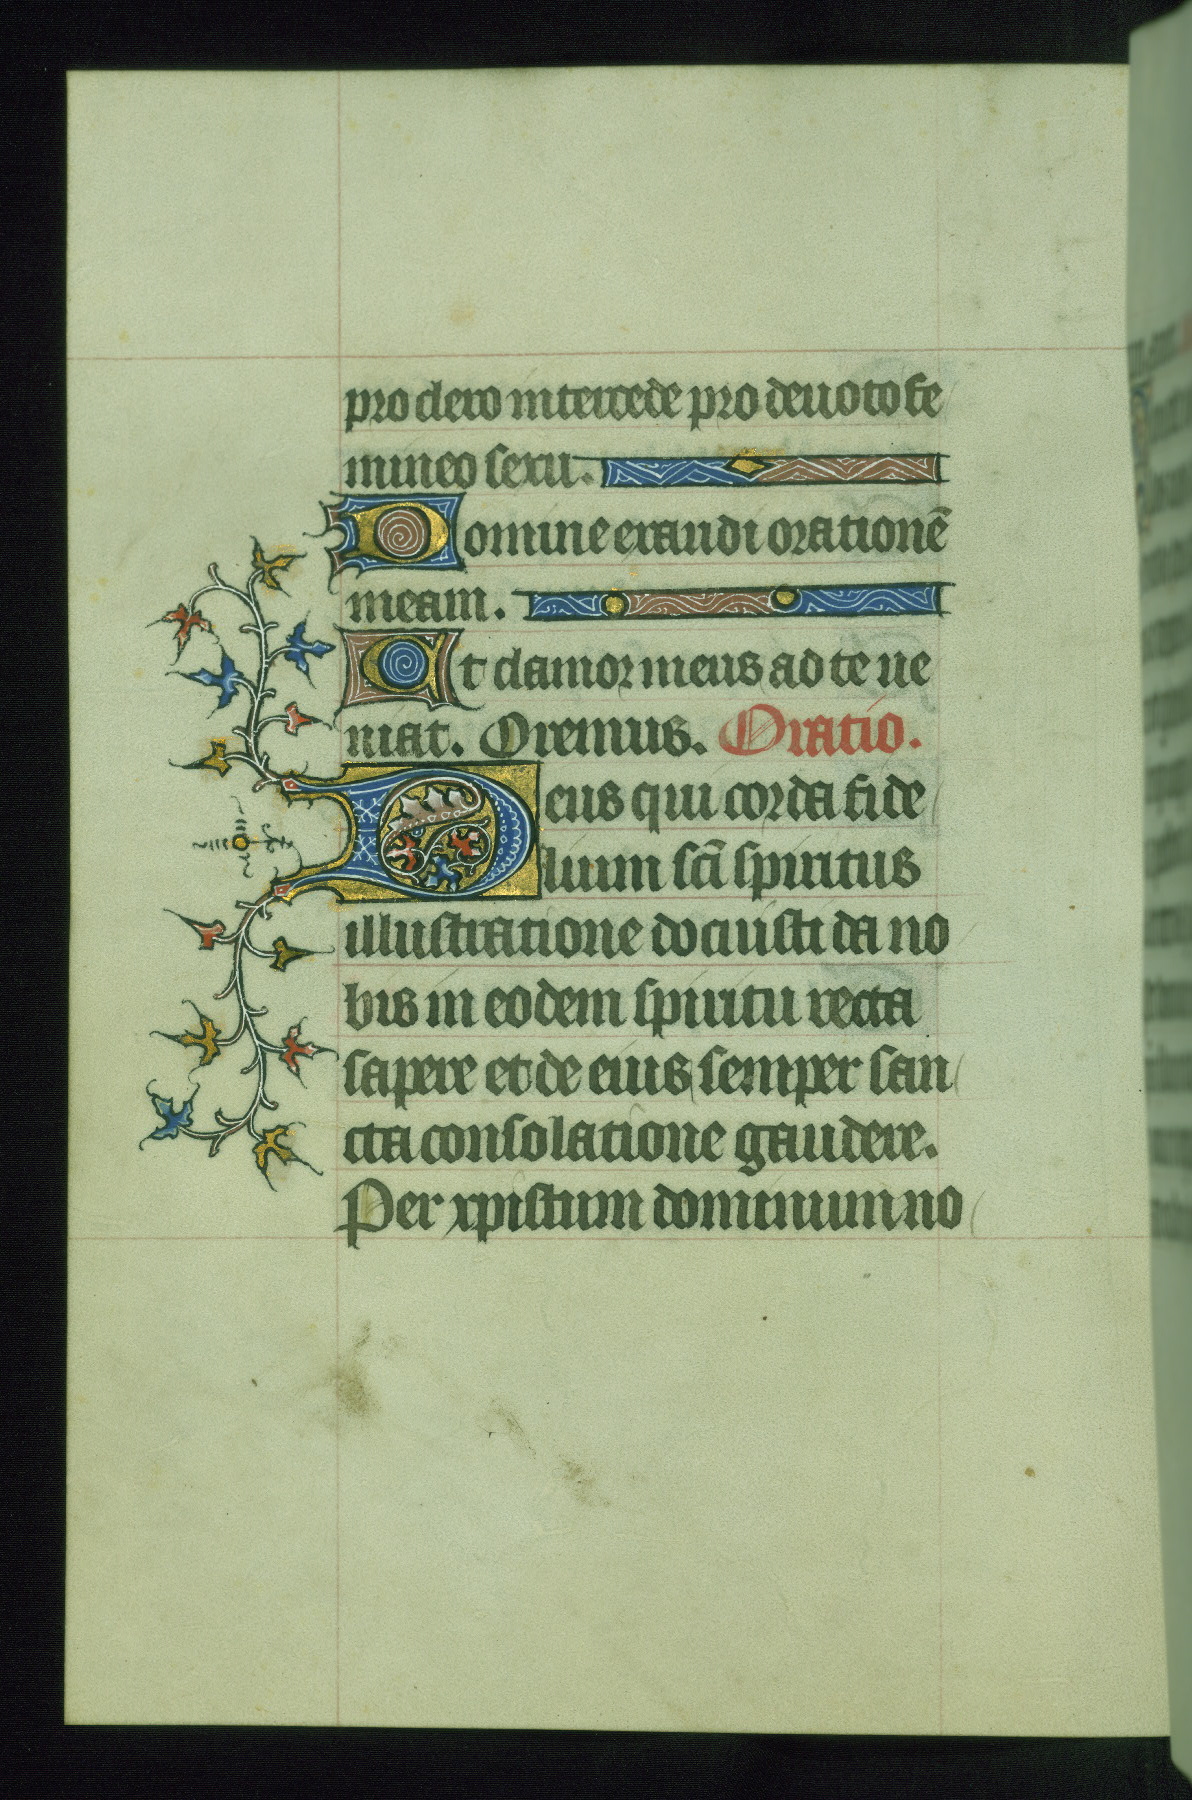 pro clero intercede pro deuoto fe
mineo sexu.
Domine exaudi orationē
meam.
Et clamor meus ad te ue
niat. Oremus. Oratio.
Deus qui corda fide
lium sc̄i spiritus
illustratione docuisti da no
bis in eodem spiritu recta
sapere et de eius semper san
cta consolatione gaudere.
Per xpistum dominum no